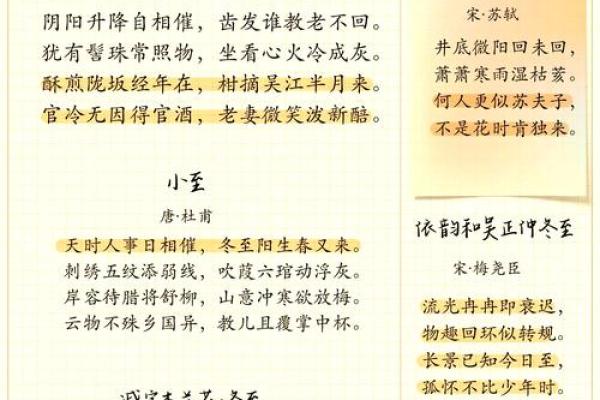 阴阳升降自相催，齿发谁教老不回。
犹有髻珠常照物，坐看心火冷成灰。
酥煎陇坂经年在，柑摘吴江半月来。
官冷无因得官酒，老妻微笑泼新醅。
小至
唐·杜甫
天时人事日相催，冬至阳生春又来。
刺绣五纹添弱线，吹葭六琯动浮灰。
岸容待腊将舒柳，山意冲寒欲放梅。
云物不殊乡国异，教儿且覆掌中杯。
宋·苏轼
井底微阳回未回，
萧萧寒雨湿枯荄。
何人更似苏夫子，
不是花时肯独来。
依韵和吴正仲冬至
宋·梅尧臣
流光冉冉即衰迟，
物趣回环似转规。
长景已知今日至，
孤怀不比少年时。